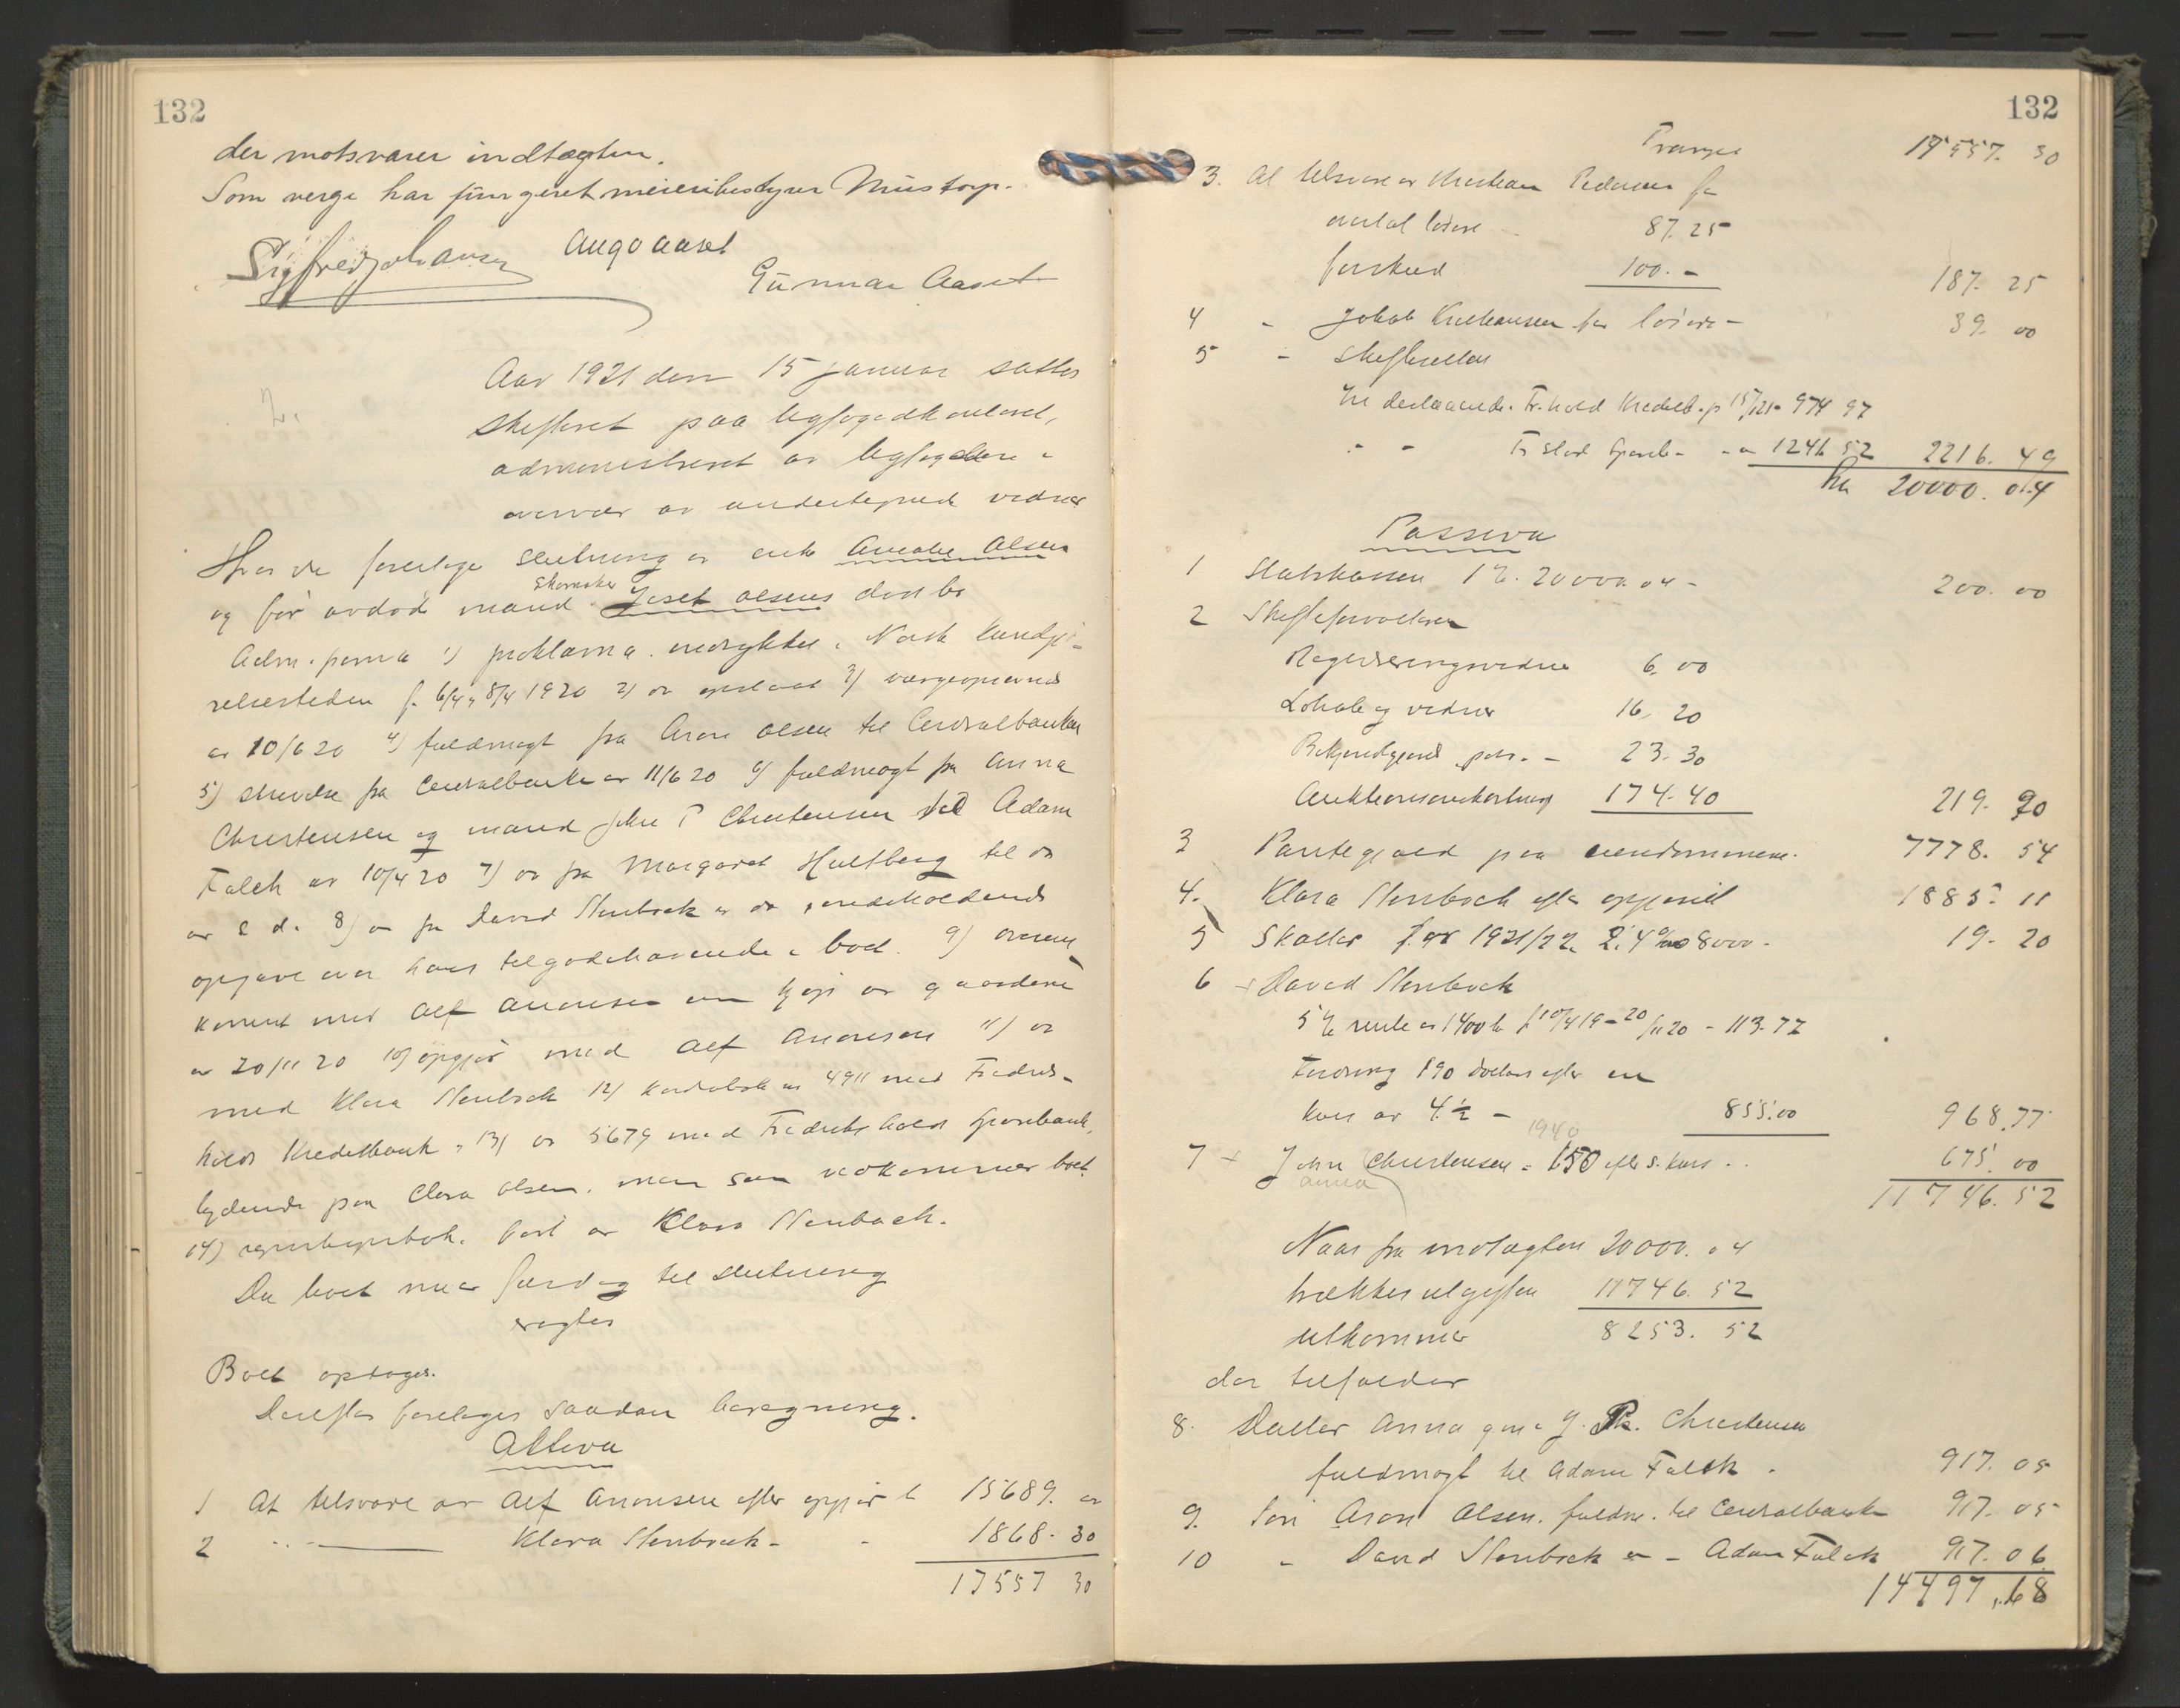 132
der motsvarer indtægten.
Som verge har fungeret meieribestyrer Mustorp.
Sigfred Johansen Aug Aaset
Gunnar Aaset
Aar 1921 den 15 januar sattes
skifteret paa byfogedkontoret,
administreret av byfogden i
overvær av undertegnede vidner
Hvor da foretoges slutning av enke Amalie Olsen
og før avdød mand Skomaker Josef Olsens dødsbo
Adm. frem la 1) proklama indrykket i Norsk Kundgjø-
relsestidende for 6/4 og 8/4 1920 2) do opslaat 3) vergeopnævnelse
av 10/6 20 4) fuldmagt fra Aron Olsen til Centralbanken
5) skrivelse fra Centralbanken av 11/6 20 6) fuldmagt fra Anna
Christensen og mand John P Christensen til Adam
Falck av 10/4 20 7) do fra Margaret Hultberg til do
av s d. 8) do fra David Stenbock av do indeholdende
opgave over hans tilgodehavende i boet. 9) overens-
komst med Alf Aronsen om kjøp av gaardene
av 20/11 20 10) opgjør med Alf Aronsen 11) do
med Klara Stenbock 12) kontrabok nr 4911 med Fredriks-
halds Kreditbank, 13) do 5679 med Fredrikshalds Sparebank,
lydende paa Clara Olsen, men som vedkommer boet
14) regnskapsbok ført av Klara Stenbock.
Da boet nu er færdig til slutning
vragtes
Boet optages.
Derefter foretoges saadan beregning.
Aktiva
1 At tilsvare av Alf Aronsen efter opgjør kr 15689. 00
2 " - Klara Stenbock - - 1868. 30
17557 30
132
Transp. 17557. 30
3. At tilsvare av Kristian Pedersen for
avertal løsøre - 87. 25
forskud 100. - 187. 25
4 - Jakob Kristiansen for løsøre - 39. 00
5 - Skifteretten
Indestaaende Fr.hald Kreditb. pr 15/1 21 - 974 97
" - Fr.hald Spareb - - " 1241 52 2216. 49
kr 20000. 04
Passiva
1 Statskassen 1 % 20000.04 - 200. 00
2 Skifteforvalteren
Registreringsvidne 6. 00
Lokale og vidner 16. 20
Bekjendtgjørelse, porto - 23. 30
Auktionsomkostning 174. 40 219. 90
3 Pantegjæld paa eiendommene. 7778. 54
4. Klara Stenbock efter opgjøret 1885. 11
5 Skatter for 1921/22 2.4 ‰ 8000. - 19. 20
6 + David Stenbock
5 % rente av 1400 kr fra 10/4 19 - 20/11 20 - 113. 77
Fordring 190 dollars efter en
kurs av 4 ½ - 855. 00 968. 77
7 + John Christensen = 150 efter s. kurs . . 675. 00
Anna 1940
11746. 52
Naar fra indtægten 20000. 04
trækkes utgiften 11746. 52
utkommer 8253. 52
der tilfalder
8. Datter Anna gm. J. P. Christensen
fuldmagt til Adam Falck. 917. 05
9. Søn Aron Olsen, fuldm. til Centralbanken 917. 05
10 - David Stenbock " - Adam Falck 917. 06
14497. 68